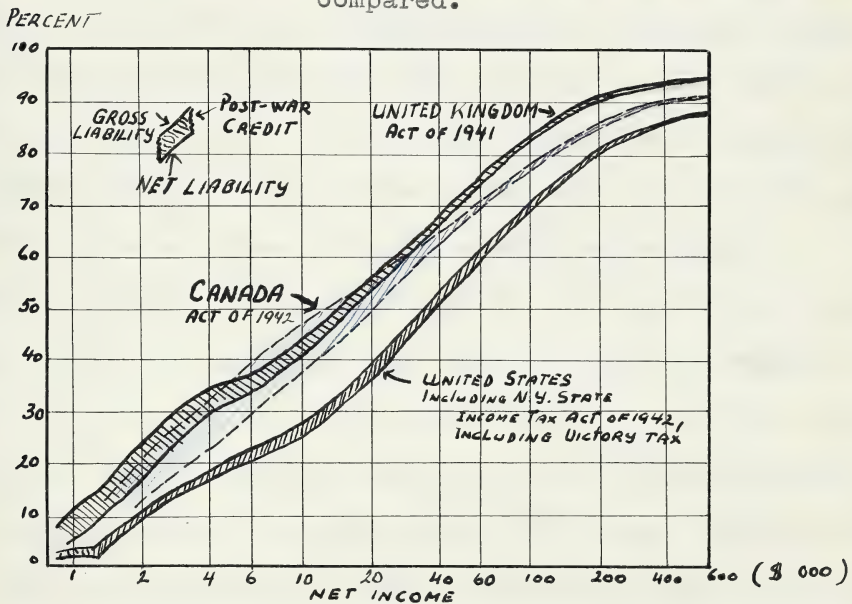 compared.
PERCENT
100
90
80
70
60
50
40
30
20
10
0
GROSS
LIABILITY
POST-WAR
CREDIT
NET LIABILITY
UNITED KINGDOM
ACT OF 1941
CANADA
ACT OF 1942
UNITED STATES
INCLUDING N.Y. STATE
INCOME TAX ACT OF 1942,
INCLUDING VICTORY TAX
1 2 4 6 10 20 40 60 100 200 400 600 ($ 000)
NET INCOME